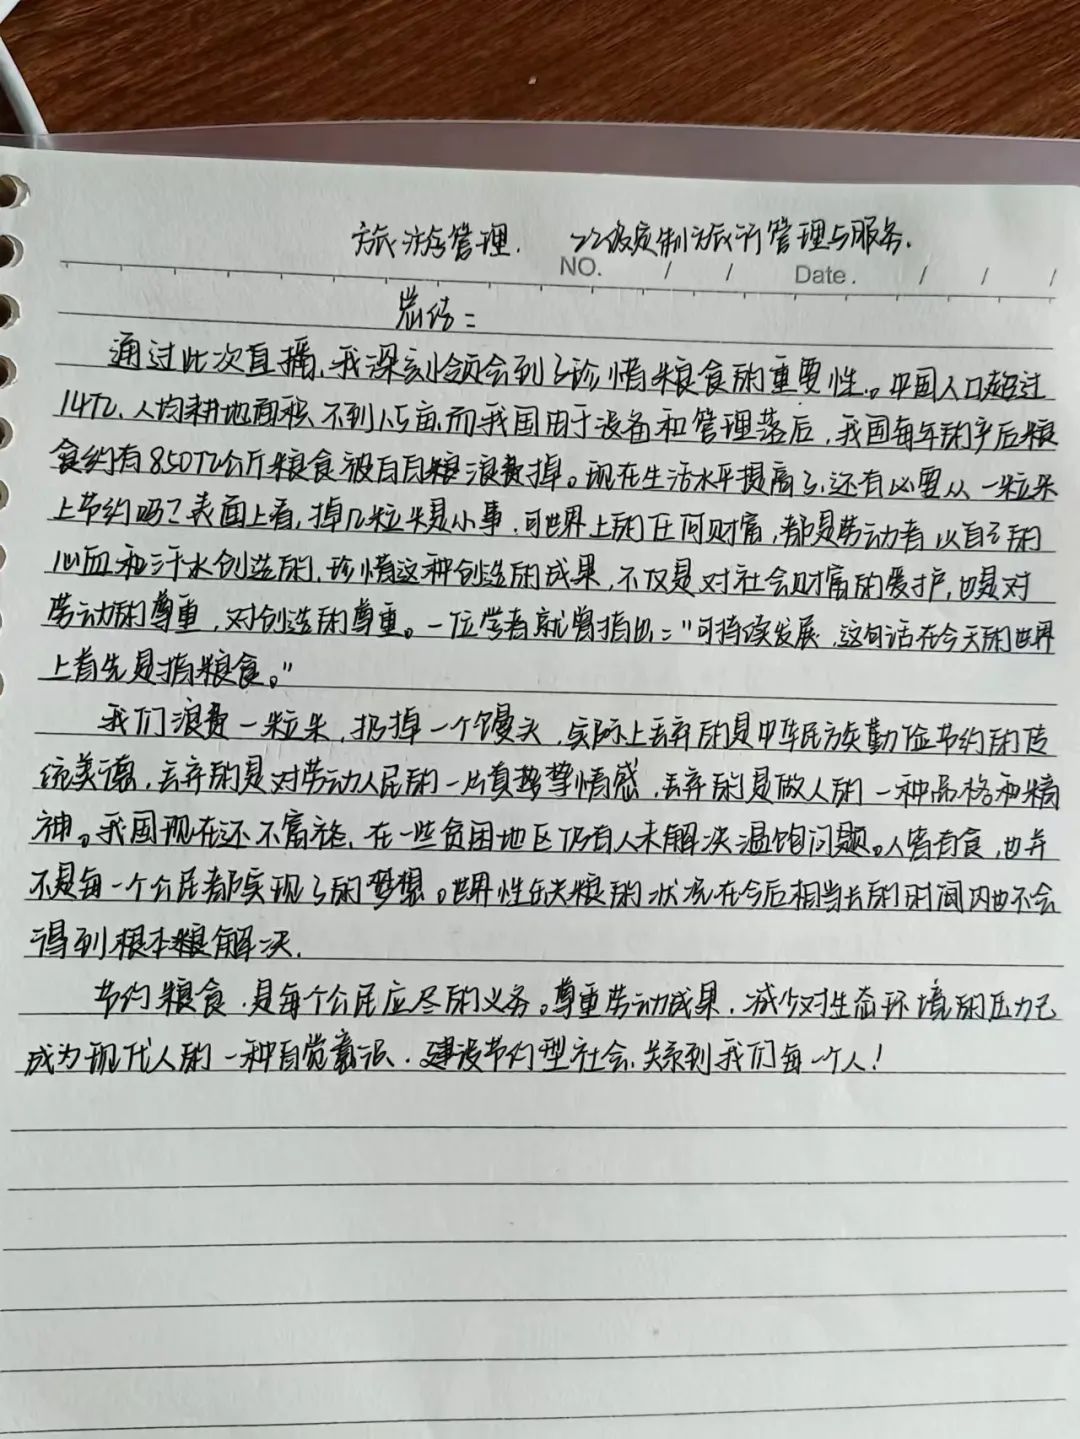 旅游管理. 22级定制旅行管理与服务.
NO. / / Date. / / /
总结:
通过此次直播,我深刻领会到了珍惜粮食的重要性。中国人口超过
14亿,人均耕地面积不到1.5亩,而我国由于设备和管理落后,我国每年的产后粮
食约有850亿公斤粮食被白白粮浪费掉。现在生活水平提高了,还有必要从一粒米
上节约吗?表面上看,掉几粒米是小事,可世界上的任何财富,都是劳动者以自己的
心血和汗水创造的,珍惜这种创造的成果,不仅是对社会财富的爱护,也是对
劳动的尊重,对创造的尊重。一位学者就曾指出:"可持续发展,这句话在今天的世界
上首先是指粮食。"
我们浪费一粒米,扔掉一个馒头,实际上丢弃的是中华民族勤俭节约的传
统美德,丢弃的是对劳动人民的一片真挚挚情感,丢弃的是做人的一种品格和精
神。我国现在还不富裕,在一些贫困地区仍有人未解决温饱问题。人皆有食,也并
不是每一个公民都实现了的梦想。世界性缺粮的状况在今后相当长的时间内也不会
得到根本粮解决.
节约粮食,是每个公民应尽的义务。尊重劳动成果,减少对生态环境的压力已
成为现代人的一种自觉意识.建设节约型社会,关系到我们每一个人!